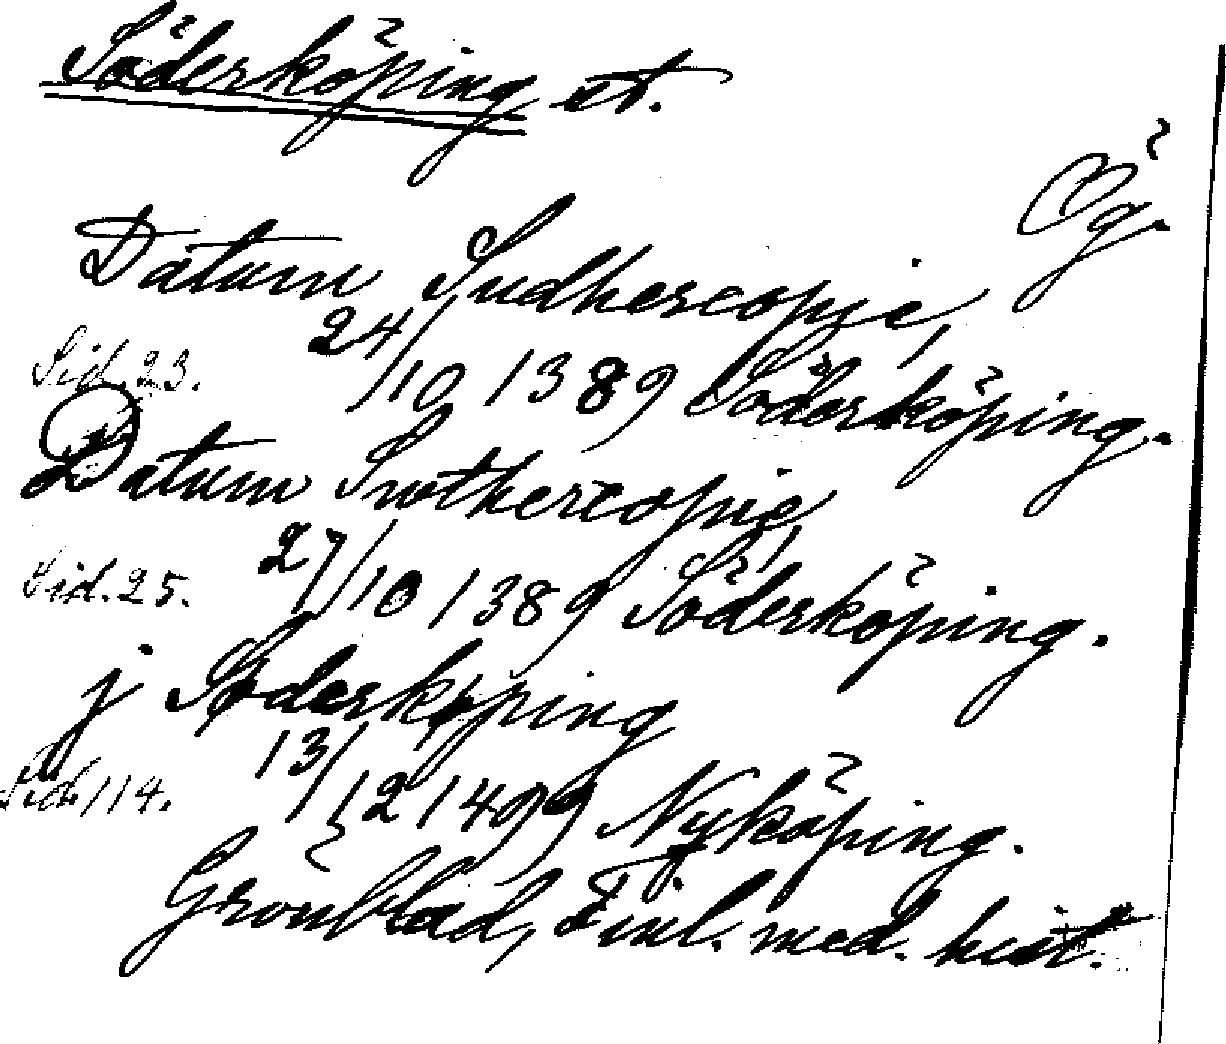 Söderköping st.
Ög.
Datum Sudhercopie,
Sid. 23. 24/10 1389 Söderköping.
Datum Suthercopie,
Sid. 25. 27/10 1389 Söderköping.
j Søderkøping
Sid. 114. 13/12 1499 Nyköping.
Grönblad, Finl. med. hist.